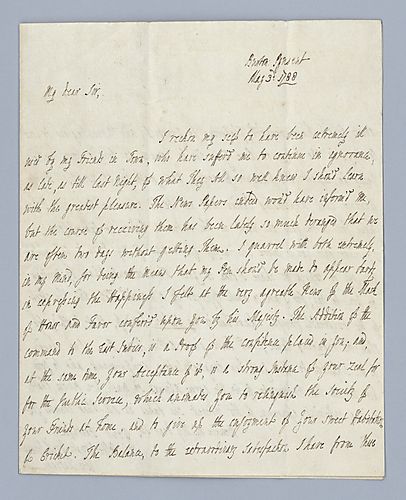 May 3d. 1788
My dear Sir,
I reckon my self to have been extremely ill
used by my Friends in Town, who have suffer'd me to continue in ignorance,
as late, as till last Night, of what They All so well knew I shou'd learn
with the greatest pleasure. The News Papers indeed wou'd have inform'd Me,
but the course of receiving them has been lately so much deranged that we
are often two days without getting Them. I quarrel with both extremely,
in my Mind, for being the means that my Pen shou'd be made to appear tardy
in expressing the Happiness I felt at the very agreable News of the Mark
of Honor and Favor conferr'd upon you by His Majesty. The Addition of the
command to the East Indies, is a Proof of the confidence placed in you; and,
at the same time, Your Acceptance of it, is a strong Instance of your zeal for
for the Publick Service, which animates You to relinquish the Society of
Your Friends at home, and to give up the enjoyment of Your sweet Habitation
of Cricket. The Balance, to the extraordinary Satisfaction I have from these